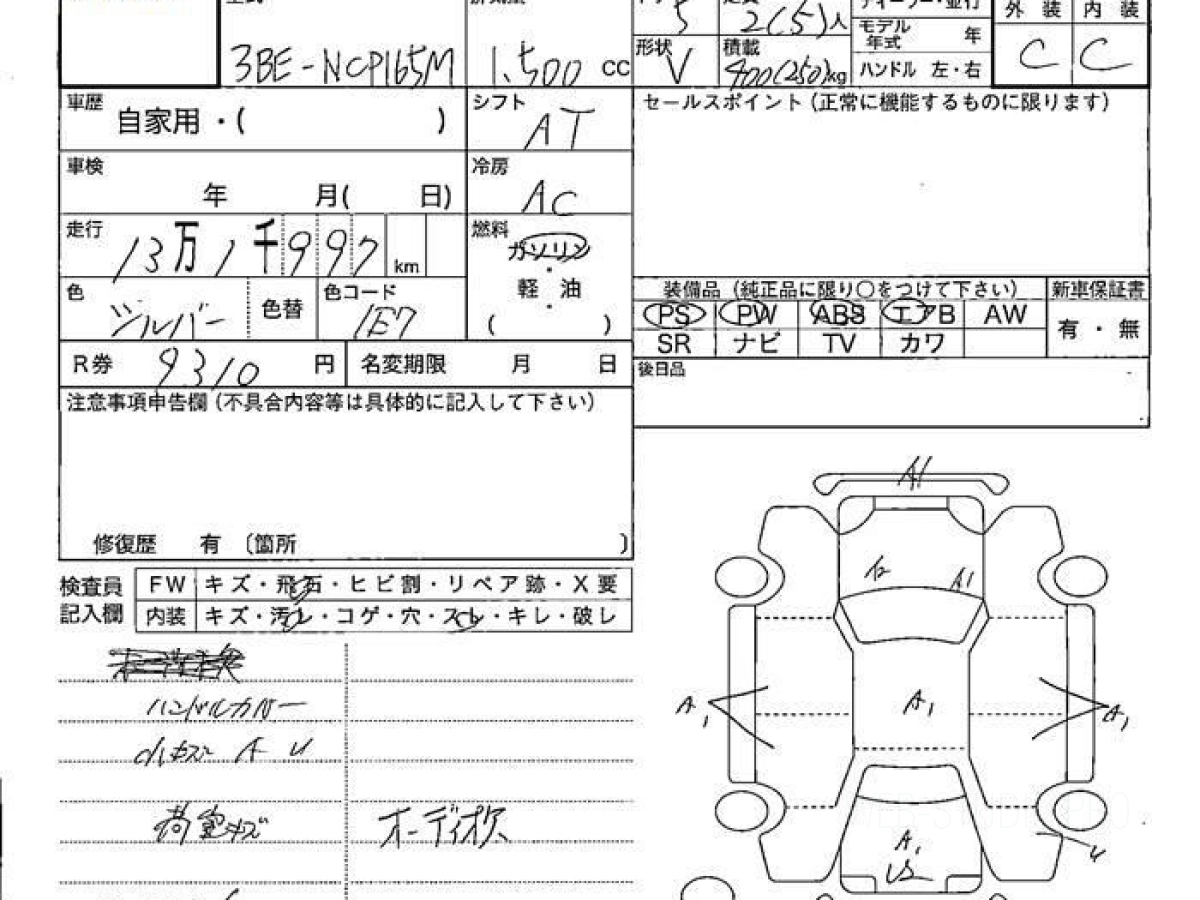 5 2(5)人
モデル年式 年
外装 内装
C C
3BE-NCP165M 1,500 cc
形状 V
積載 400(250)kg
ハンドル 左・右
車歴 自家用・( )
シフト AT
セールスポイント(正常に機能するものに限ります)
車検 年 月( 日)
冷房 AC
走行 13万1千997 km
燃料 ガソリン・軽油・( )
色 シルバー 色替 色コード 1E7
装備品(純正品に限り○をつけて下さい) 新車保証書
PS PW ABS エアB AW 有・無
SR ナビ TV カワ
R券 9310 円 名変期限 月 日
後日品
注意事項申告欄(不具合内容等は具体的に記入して下さい)
修復歴 有 〔箇所 〕
検査員記入欄
FW キズ・飛石・ヒビ割・リペア跡・X要
内装 キズ・汚レ・コゲ・穴・スレ・キレ・破レ
ハンドルカバー
小キズ A U
荷室キズ オーディオレス
A1
A1
A1 A1 A1
U
A1
U2